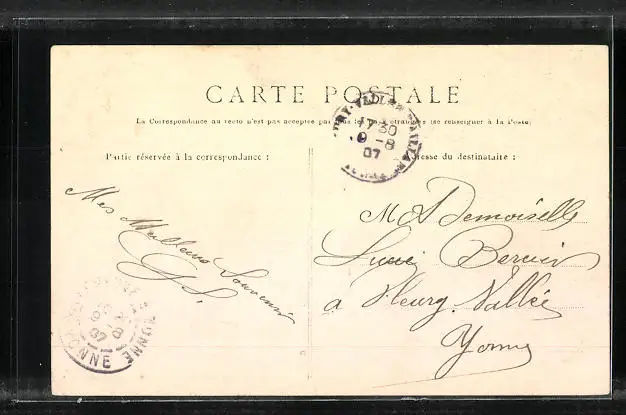 CARTE POSTALE
La Correspondance au recto n'est pas acceptée par tous les pays étrangers (se renseigner à la Poste)
Partie réservée à la correspondance :
Adresse du destinataire :
17 30
9 - 8
07
Mes Meilleurs Souvenirs
G S.
MDemoiselle
à Fleury-Vallée
Yonne
07
YONNE